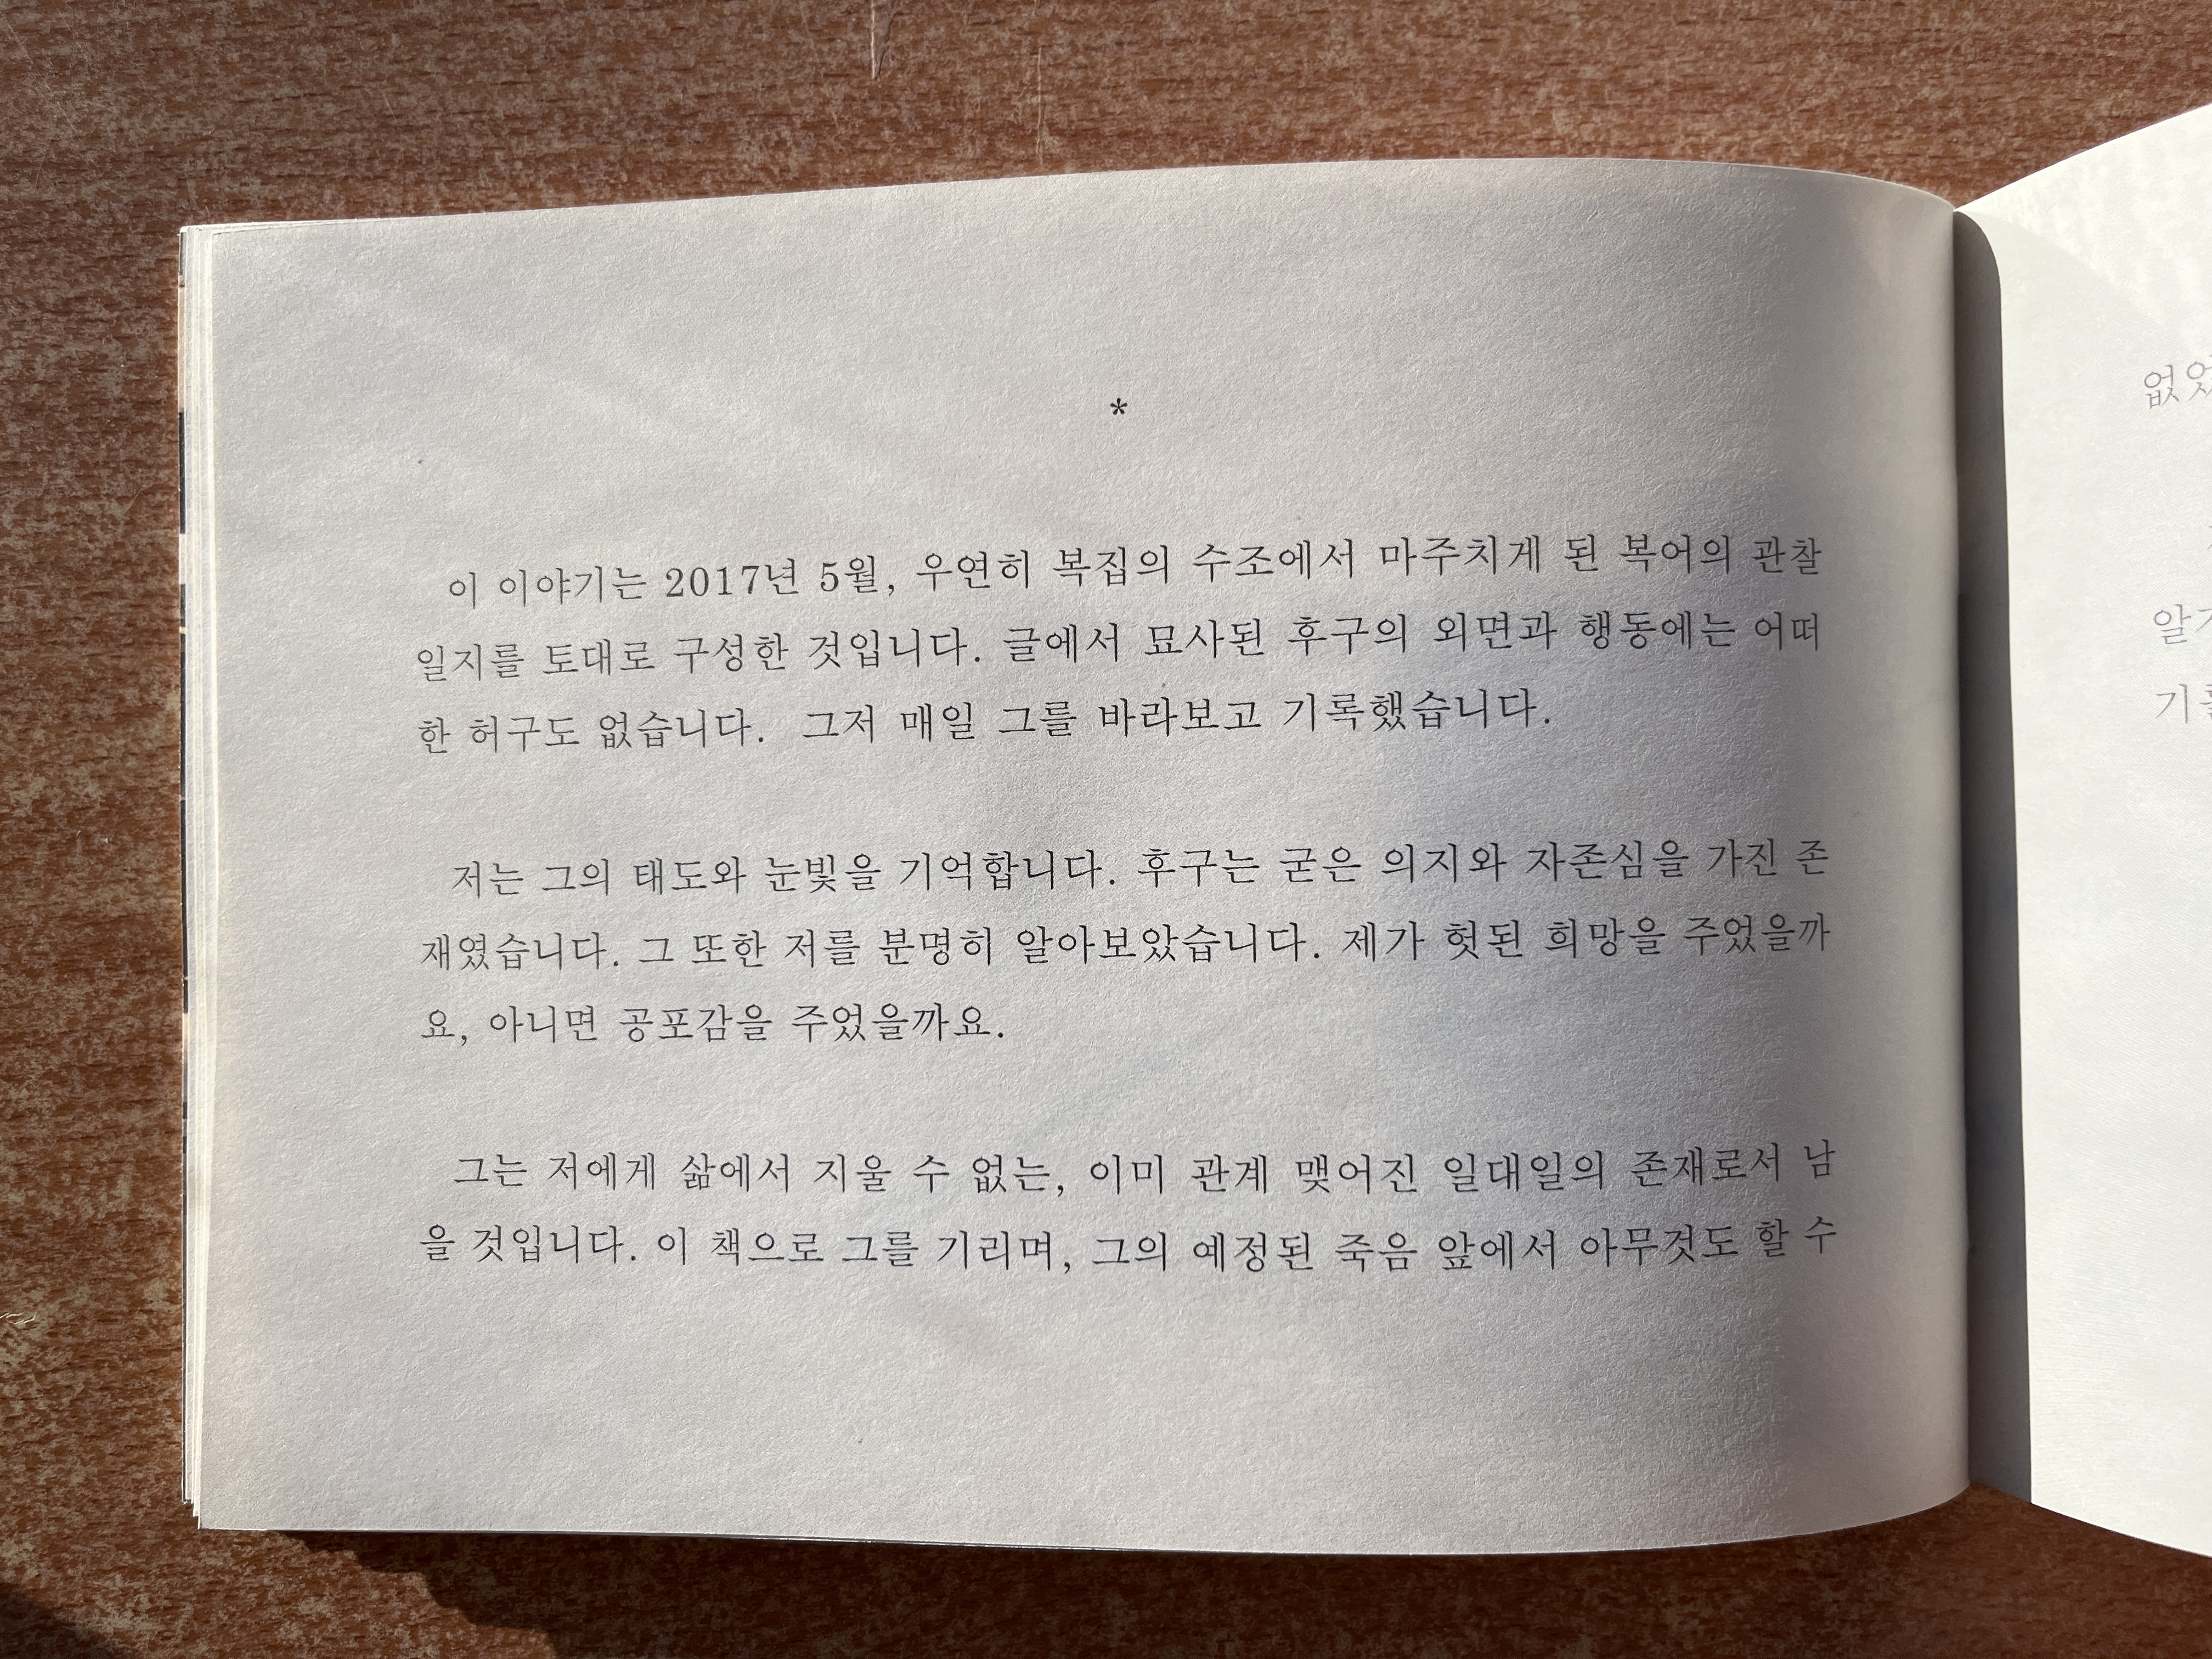 *
이 이야기는 2017년 5월, 우연히 복집의 수조에서 마주치게 된 복어의 관찰
일지를 토대로 구성한 것입니다. 글에서 묘사된 후구의 외면과 행동에는 어떠
한 허구도 없습니다. 그저 매일 그를 바라보고 기록했습니다.
저는 그의 태도와 눈빛을 기억합니다. 후구는 굳은 의지와 자존심을 가진 존
재였습니다. 그 또한 저를 분명히 알아보았습니다. 제가 헛된 희망을 주었을까
요, 아니면 공포감을 주었을까요.
그는 저에게 삶에서 지울 수 없는, 이미 관계 맺어진 일대일의 존재로서 남
을 것입니다. 이 책으로 그를 기리며, 그의 예정된 죽음 앞에서 아무것도 할 수